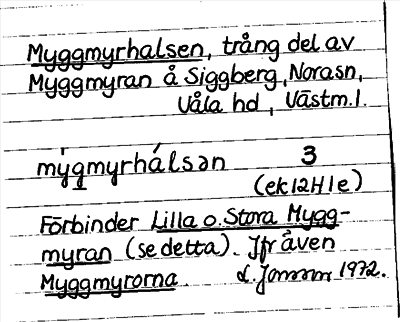 Myggmyrhalsen, trång del av
Myggmyran å Siggberg, Norasn,
Våla hd, Västm.l.
mỳgmyrhálsən 3
(ek 12H 1e)
Förbinder Lilla o. Stora Mygg-
myran (se detta). Jfr även
Myggmyrorna. 1972.